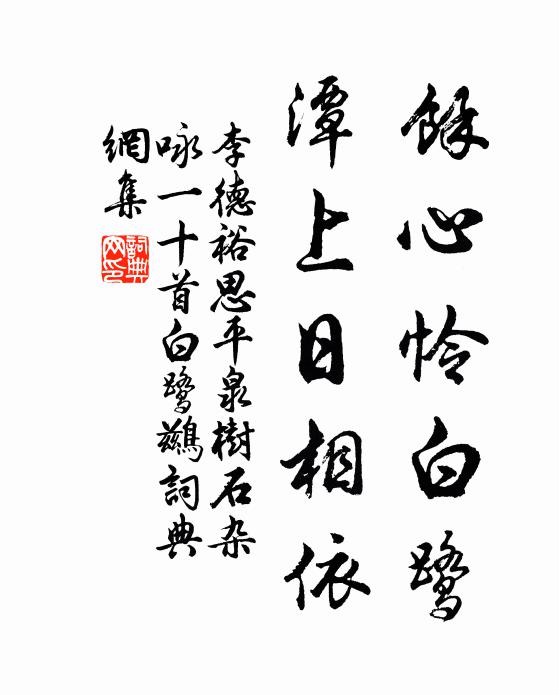 餘心怜白鹭
潭上日相依
李德裕思平泉樹石杂
咏一十首白鹭鷀詞典
網集
詞典网印